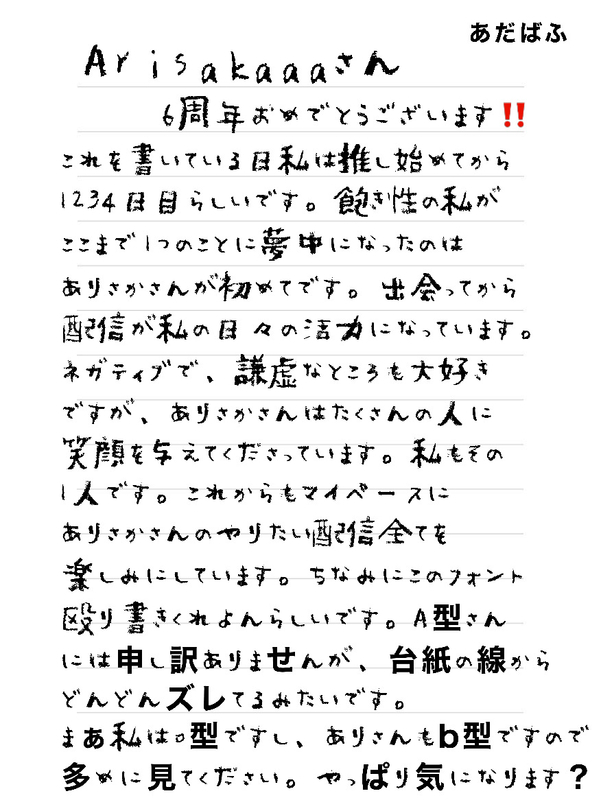 あだばふ
Arisakaaaさん
6周年おめでとうございます‼️
これを書いている日私は推し始めてから
1234日目らしいです。飽き性の私が
ここまで1つのことに夢中になったのは
ありさかさんが初めてです。出会ってから
配信が私の日々の活力になっています。
ネガティブで、謙虚なところも大好き
ですが、ありさかさんはたくさんの人に
笑顔を与えてくださっています。私もその
1人です。これからもマイペースに
ありさかさんのやりたい配信全てを
楽しみにしています。ちなみにこのフォント
殴り書きくれよんらしいです。A型さん
には申し訳ありませんが、台紙の線から
どんどんズレてるみたいです。
まあ私はo型ですし、ありさんもb型ですので
多めに見てください。やっぱり気になります?